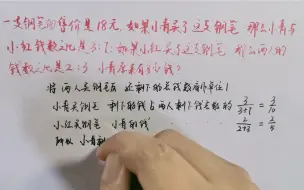 一支钢笔的售价是18元，如果小青买了这支钢笔 那么小青与
小红钱数之比是3:7；如果小红买了这支钢笔 那么两人的
钱数之比是2:3 小青原来有多少钱？
将两人买钢笔后 还剩下的总钱数看作单位1
小青买钢笔 剩下的钱占两人剩下钱总数的 3/(3+7) = 3/10
小红买钢笔 小青的钱 2/(2+3) = 2/5
所以 小青